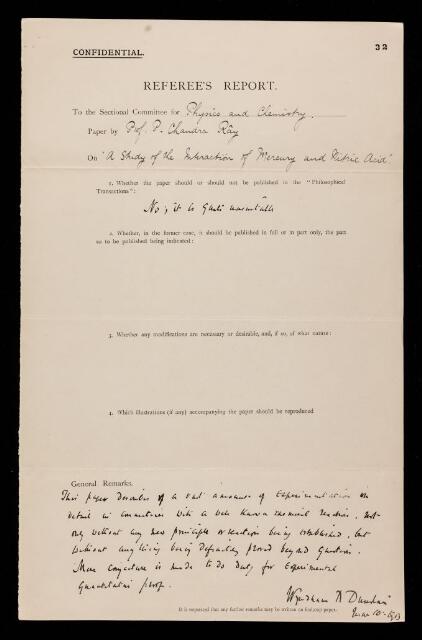 CONFIDENTIAL.
32
REFEREE'S REPORT.
To the Sectional Committee for Physics and Chemistry.
Paper by Prof. P. Chandra Rây
On "A Study of the Interaction of Mercury and Nitric Acid"
1. Whether the paper should or should not be published in the "Philosophical
Transactions":
No; it is quite unsuitable
2. Whether, in the former case, it should be published in full or in part only, the part
so to be published being indicated:
3. Whether any modifications are necessary or desirable, and, if so, of what nature:
4. Which illustrations (if any) accompanying the paper should be reproduced
General Remarks.
This paper describes a vast amount of experimentation in
detail in connection with a well known chemical reaction, not
only without any new principle or reaction being established, but
without anything being definitely proved beyond question.
Mere conjecture is made to do duty for experimental
quantitative proof.
Wyndham R Dunstan
It is requested that any further remarks may be written on foolscap paper.